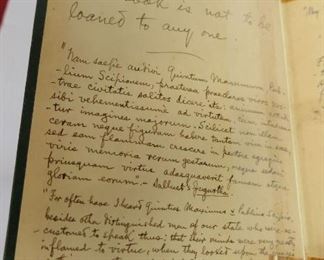 book is not to be
loaned to any one.
"Nam saepe audivi Quintum Maxumum, Pub-
-lium Scipionem, praeterea praeclaros viros nos-
-trae civitatis solitos dicere ita;
sibi vehementissume ad virtutem,
-tur imagines majorum. Scilicet non
ceram neque figuram tantam vim in sese
sed eam flammam crescere in pectore egregiis
viris memoria rerum gestarum, neque sedari
priusquam virtus adaequaverit famam atque
gloriam eorum. - Sallust's Jugurtha
"For often have I heard Quintus Maximus + Publius Scipio,
besides other distinguished men of our state who were ac-
customed to speak thus; that their minds were very greatly
inflamed to virtue, when they looked upon the